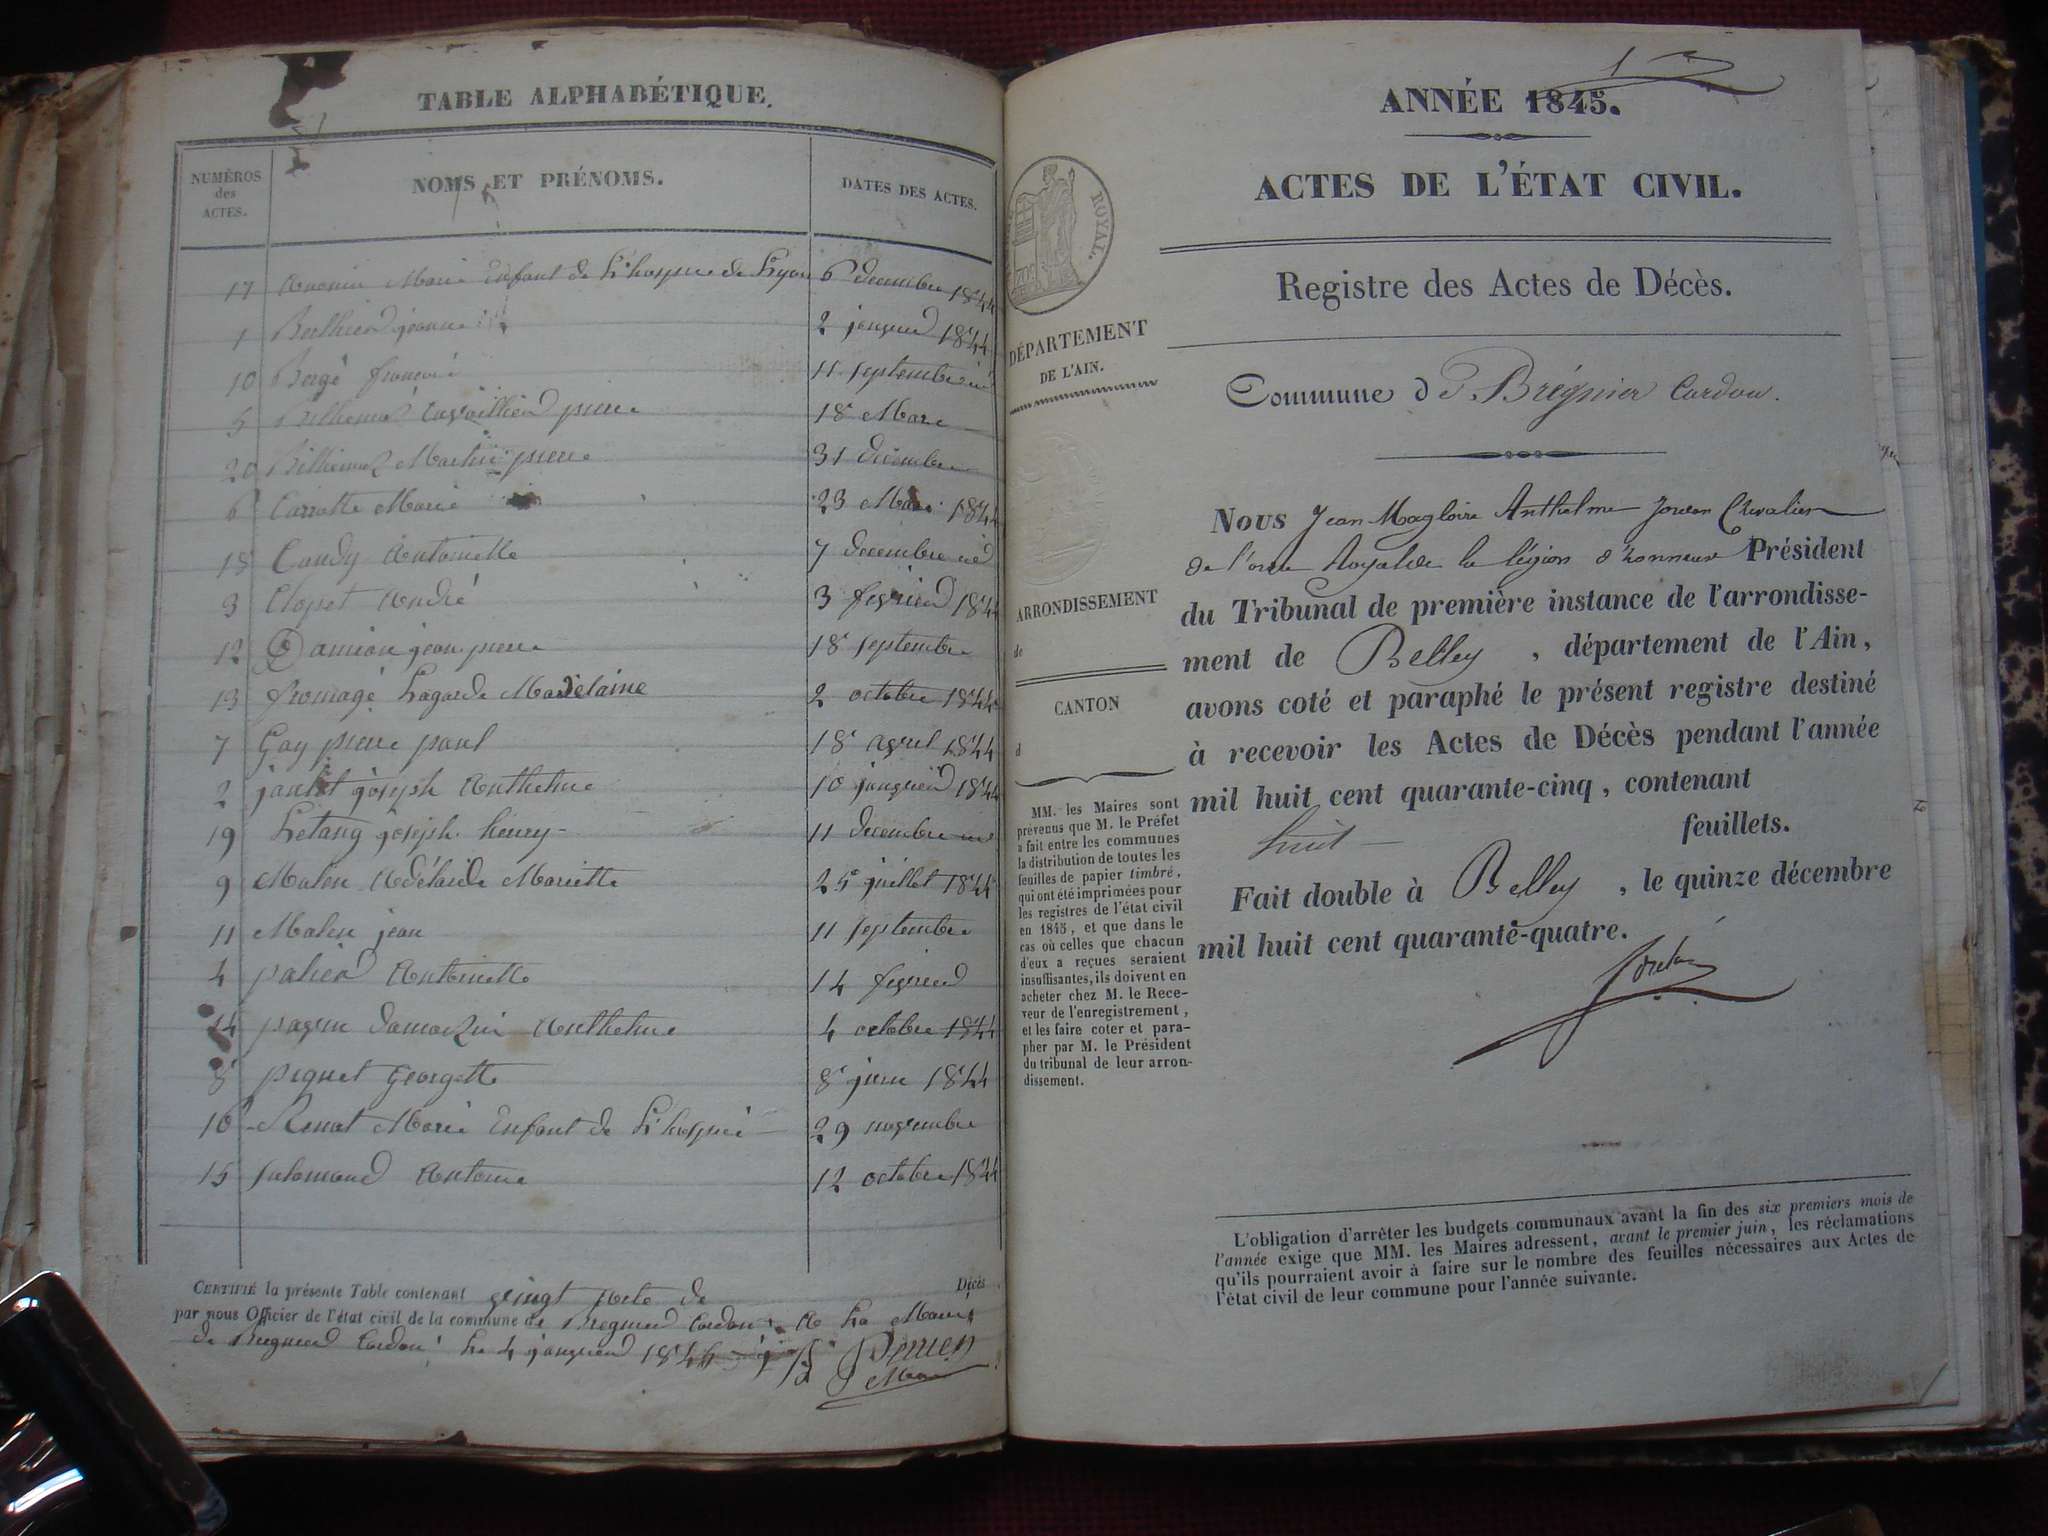 TABLE ALPHABÉTIQUE.
NUMÉROS des ACTES.
NOMS ET PRÉNOMS.
DATES DES ACTES.
17 Marie Enfant de L'hospice de Lyon 6 decembre 1844
1 jeanne 2 janvied 1844
10 Bergé 11 septembre
5 pierre 18 Mars
20 Martin pierre 31 decembre
6 Carratte Marie 23 Mars 1844
18 Candy Antoinette 7 decembre
3 Clopet André 3 fevried 1844
12 Damian jean pierre 18 septembre
13 fromage Lagarde Madelaine 2 octobre 1844
7 Gay pierre paul 18 avril 1844
2 joseph Anthelme 10 janvied 1844
19 Letang joseph henry 11 decembre
9 Malen Adélaide Mariette 25 juillet 1844
11 Malen jean 11 septembre
4 Antoinette 14 fevried
14 Anthelme 4 octobre 1844
8 piquet Georgette 8 juin 1844
16 Renat Marie Enfant de L'hospice 29 novembre
15 Antoine 12 octobre 1844
CERTIFIÉ la présente Table contenant vingt acte de Décès
par nous Officier de l'état civil de la commune de Bregnied Cordon A La Mairie
de Bregnied Cordon Le 4 janvied
ANNÉE 1845.
ACTES DE L'ÉTAT CIVIL.
ROYAL.
Registre des Actes de Décès.
DÉPARTEMENT
DE L'AIN.
Commune d Brégnier Cordon.
ARRONDISSEMENT
de
CANTON
d
Nous Jean Magloire Anthelme Chevalier
de l'ordre Royal de la légion d'honneur Président
du Tribunal de première instance de l'arrondisse-
ment de Belley, département de l'Ain,
avons coté et paraphé le présent registre destiné
à recevoir les Actes de Décès pendant l'année
mil huit cent quarante-cinq, contenant
huit feuillets.
Fait double à Belley, le quinze décembre
mil huit cent quarante-quatre.
MM. les Maires sont
prévenus que M. le Préfet
a fait entre les communes
la distribution de toutes les
feuilles de papier timbré,
qui ont été imprimées pour
les registres de l'état civil
en 1845, et que dans le
cas où celles que chacun
d'eux a reçues seraient
insuffisantes, ils doivent en
acheter chez M. le Rece-
veur de l'enregistrement,
et les faire coter et para-
pher par M. le Président
du tribunal de leur arron-
dissement.
L'obligation d'arrêter les budgets communaux avant la fin des six premiers mois de
l'année exige que MM. les Maires adressent, avant le premier juin, les réclamations
qu'ils pourraient avoir à faire sur le nombre des feuilles nécessaires aux Actes de
l'état civil de leur commune pour l'année suivante.